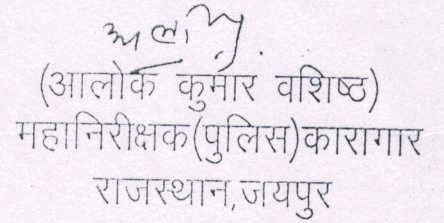 (आलोक कुमार वशिष्ठ)
महानिरीक्षक(पुलिस)कारागार
राजस्थान,जयपुर